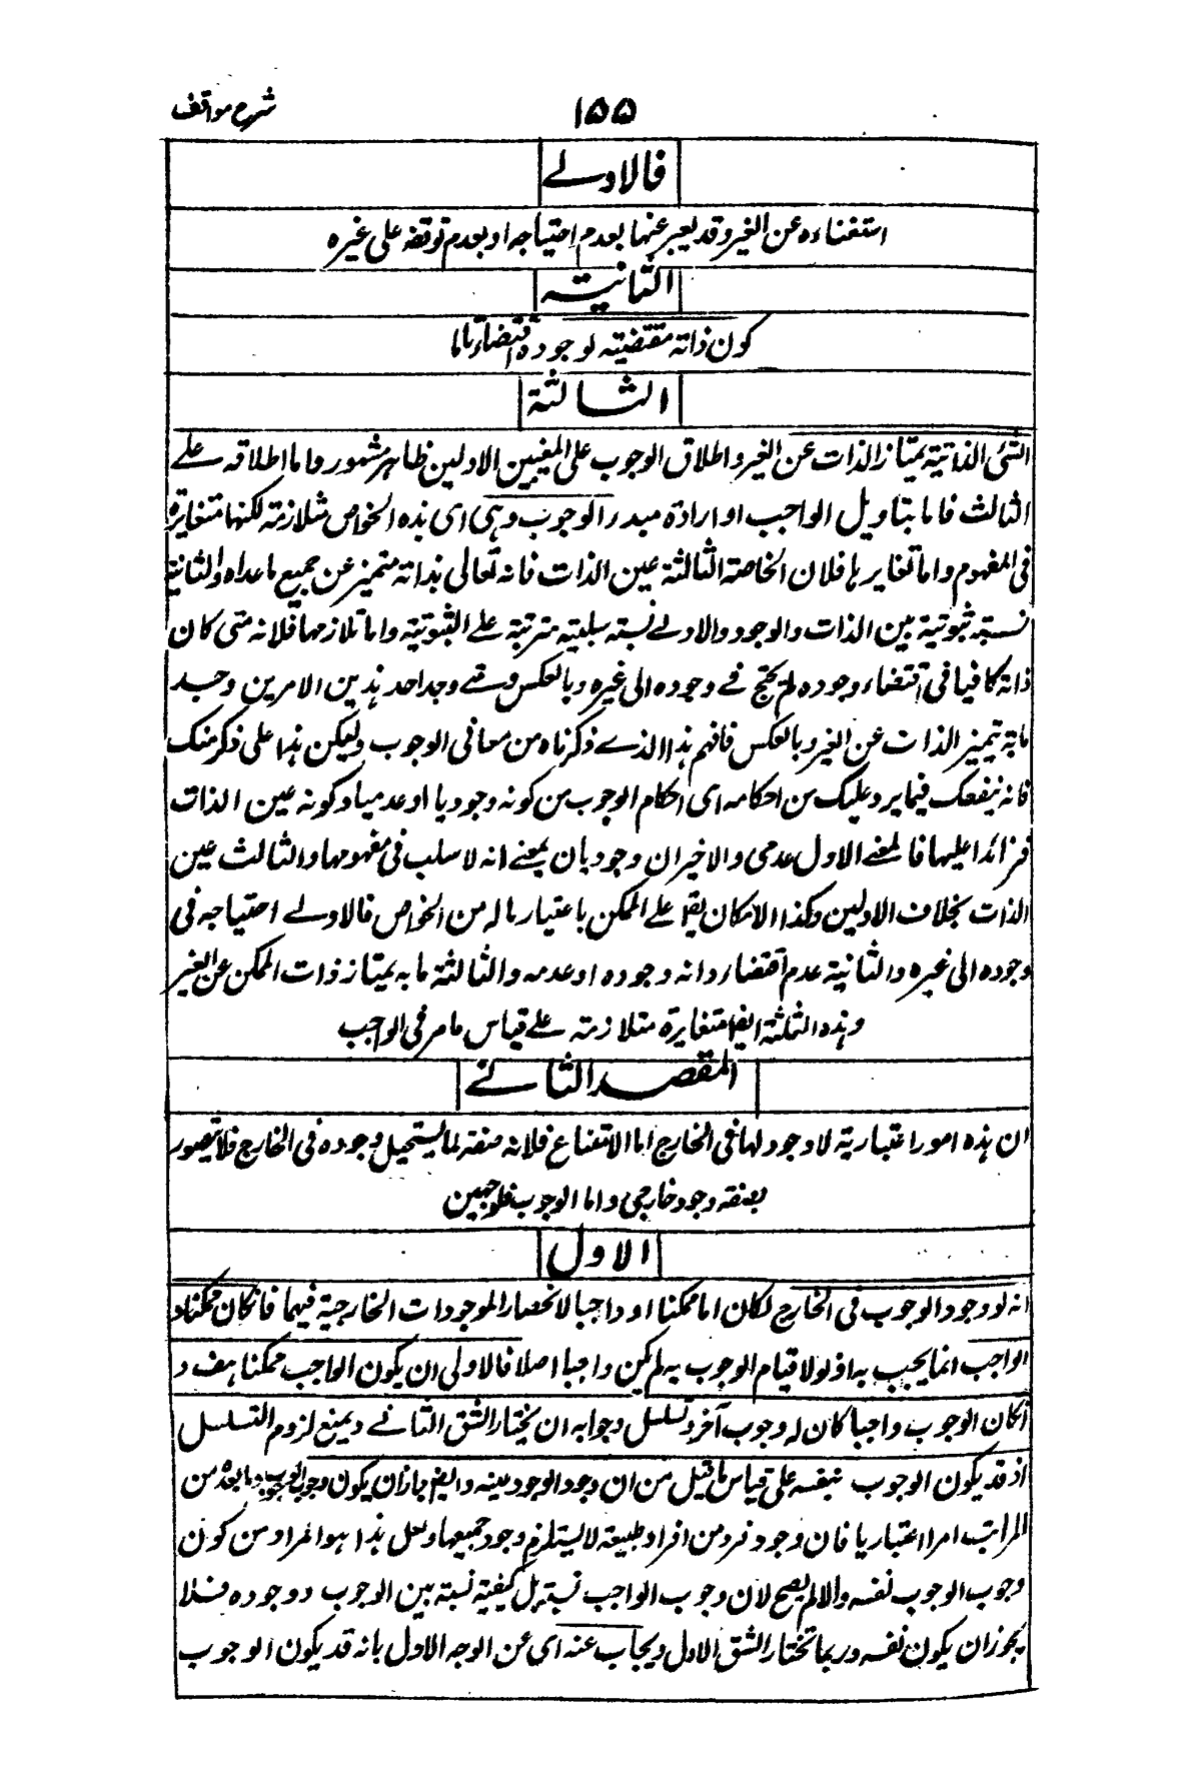 شرح مواقف
۱۵۵
فالاولے
استغناءه عن الغير وقد يعبر عنها بعدم احتياجه او بعدم توقفه على غيره
الثانية
كون ذاته مقتضية لوجوده اقتضاء تاما
الثالثة
الشئ الذى به يمتاز الذات عن الغير واطلاق الوجوب على المعنيين الاولين ظاهر مشهور واما اطلاقه علے
الثالث فاما بتاويل الواجب او ارادة مبدء الوجوب وهى اى هذه الخواص متلازمة لكنها متغايرة
فى المفهوم واما تغايرها فلان الخاصة الثالثة عين الذات فانه تعالى بذاته متميز عن جميع ما عداه والثانية
نسبة ثبوتية بين الذات والوجود والاولے نسبة سلبية مترتبة علے الثبوتية واما تلازمها فلانه متى كان
ذاته كافيا فى اقتضاء وجوده لم يحتج فے وجوده الى غيره وبالعكس ومتے وجد احد هذين الامرين وجد
ما به تتميز الذات عن الغير وبالعكس فافهم هذا الذے ذكرناه من معانى الوجوب وليكن هذا على ذكر منك
فانه ينفعك فيما يرد عليك من احكامه اى احكام الوجوب من كونه وجوديا او عدميا وكونه عين الذات
او زائدا عليها فالمعنے الاول عدمى والاخيران وجوديان بمعنے انه لا سلب فى مفهومها والثالث عين
الذات بخلاف الاولين وكذا الامكان يقع علے الممكن باعتبار ما له من الخواص فالاولے احتياجه فى
وجوده الى غيره والثانية عدم اقتضاء ذاته وجوده او عدمه والثالثة ما به يمتاز ذات الممكن عن الغير
وهذه الثلثة ايضا متغايرة متلازمة علے قياس ما مر فى الواجب
المقصد الثانے
ان هذه امور اعتبارية لا وجود لها فى الخارج اما الامتناع فلانه صفة لما يستحيل وجوده فى الخارج فلا يتصور
بصفة وجود خارجى واما الوجوب فلوجهين
الاول
انه لو وجد الوجوب فى الخارج لكان اما ممكنا او واجبا لانحصار الموجودات الخارجية فيهما فان كان ممكنا و
الواجب انما يجب به اذ لولا قيام الوجوب به لم يكن واجبا اصلا فالاولى ان يكون الواجب ممكنا هف و
ان كان الوجوب واجبا كان له وجوب آخر وتسلسل وجوابه ان يختار الشق الثانے ويمنع لزوم التسلسل
اذ قد يكون الوجوب بنفسه على قياس ما قيل من ان وجود الوجود عينه وايضا جاز ان يكون وجوب الوجوب وما بعده من
المراتب امرا اعتباريا فان وجود فرد من افراد طبيعة لا يستلزم وجود جميعها ولعل هذا هو المراد من كون
وجوب الوجوب نفسه والا لم يصح لان وجوب الواجب نسبة بل كيفية نسبة بين الوجوب ووجوده فلا
يجوز ان يكون نفسه وربما تختار الشق الاول ويجاب عنه اى عن الوجه الاول بانه قد يكون الوجوب